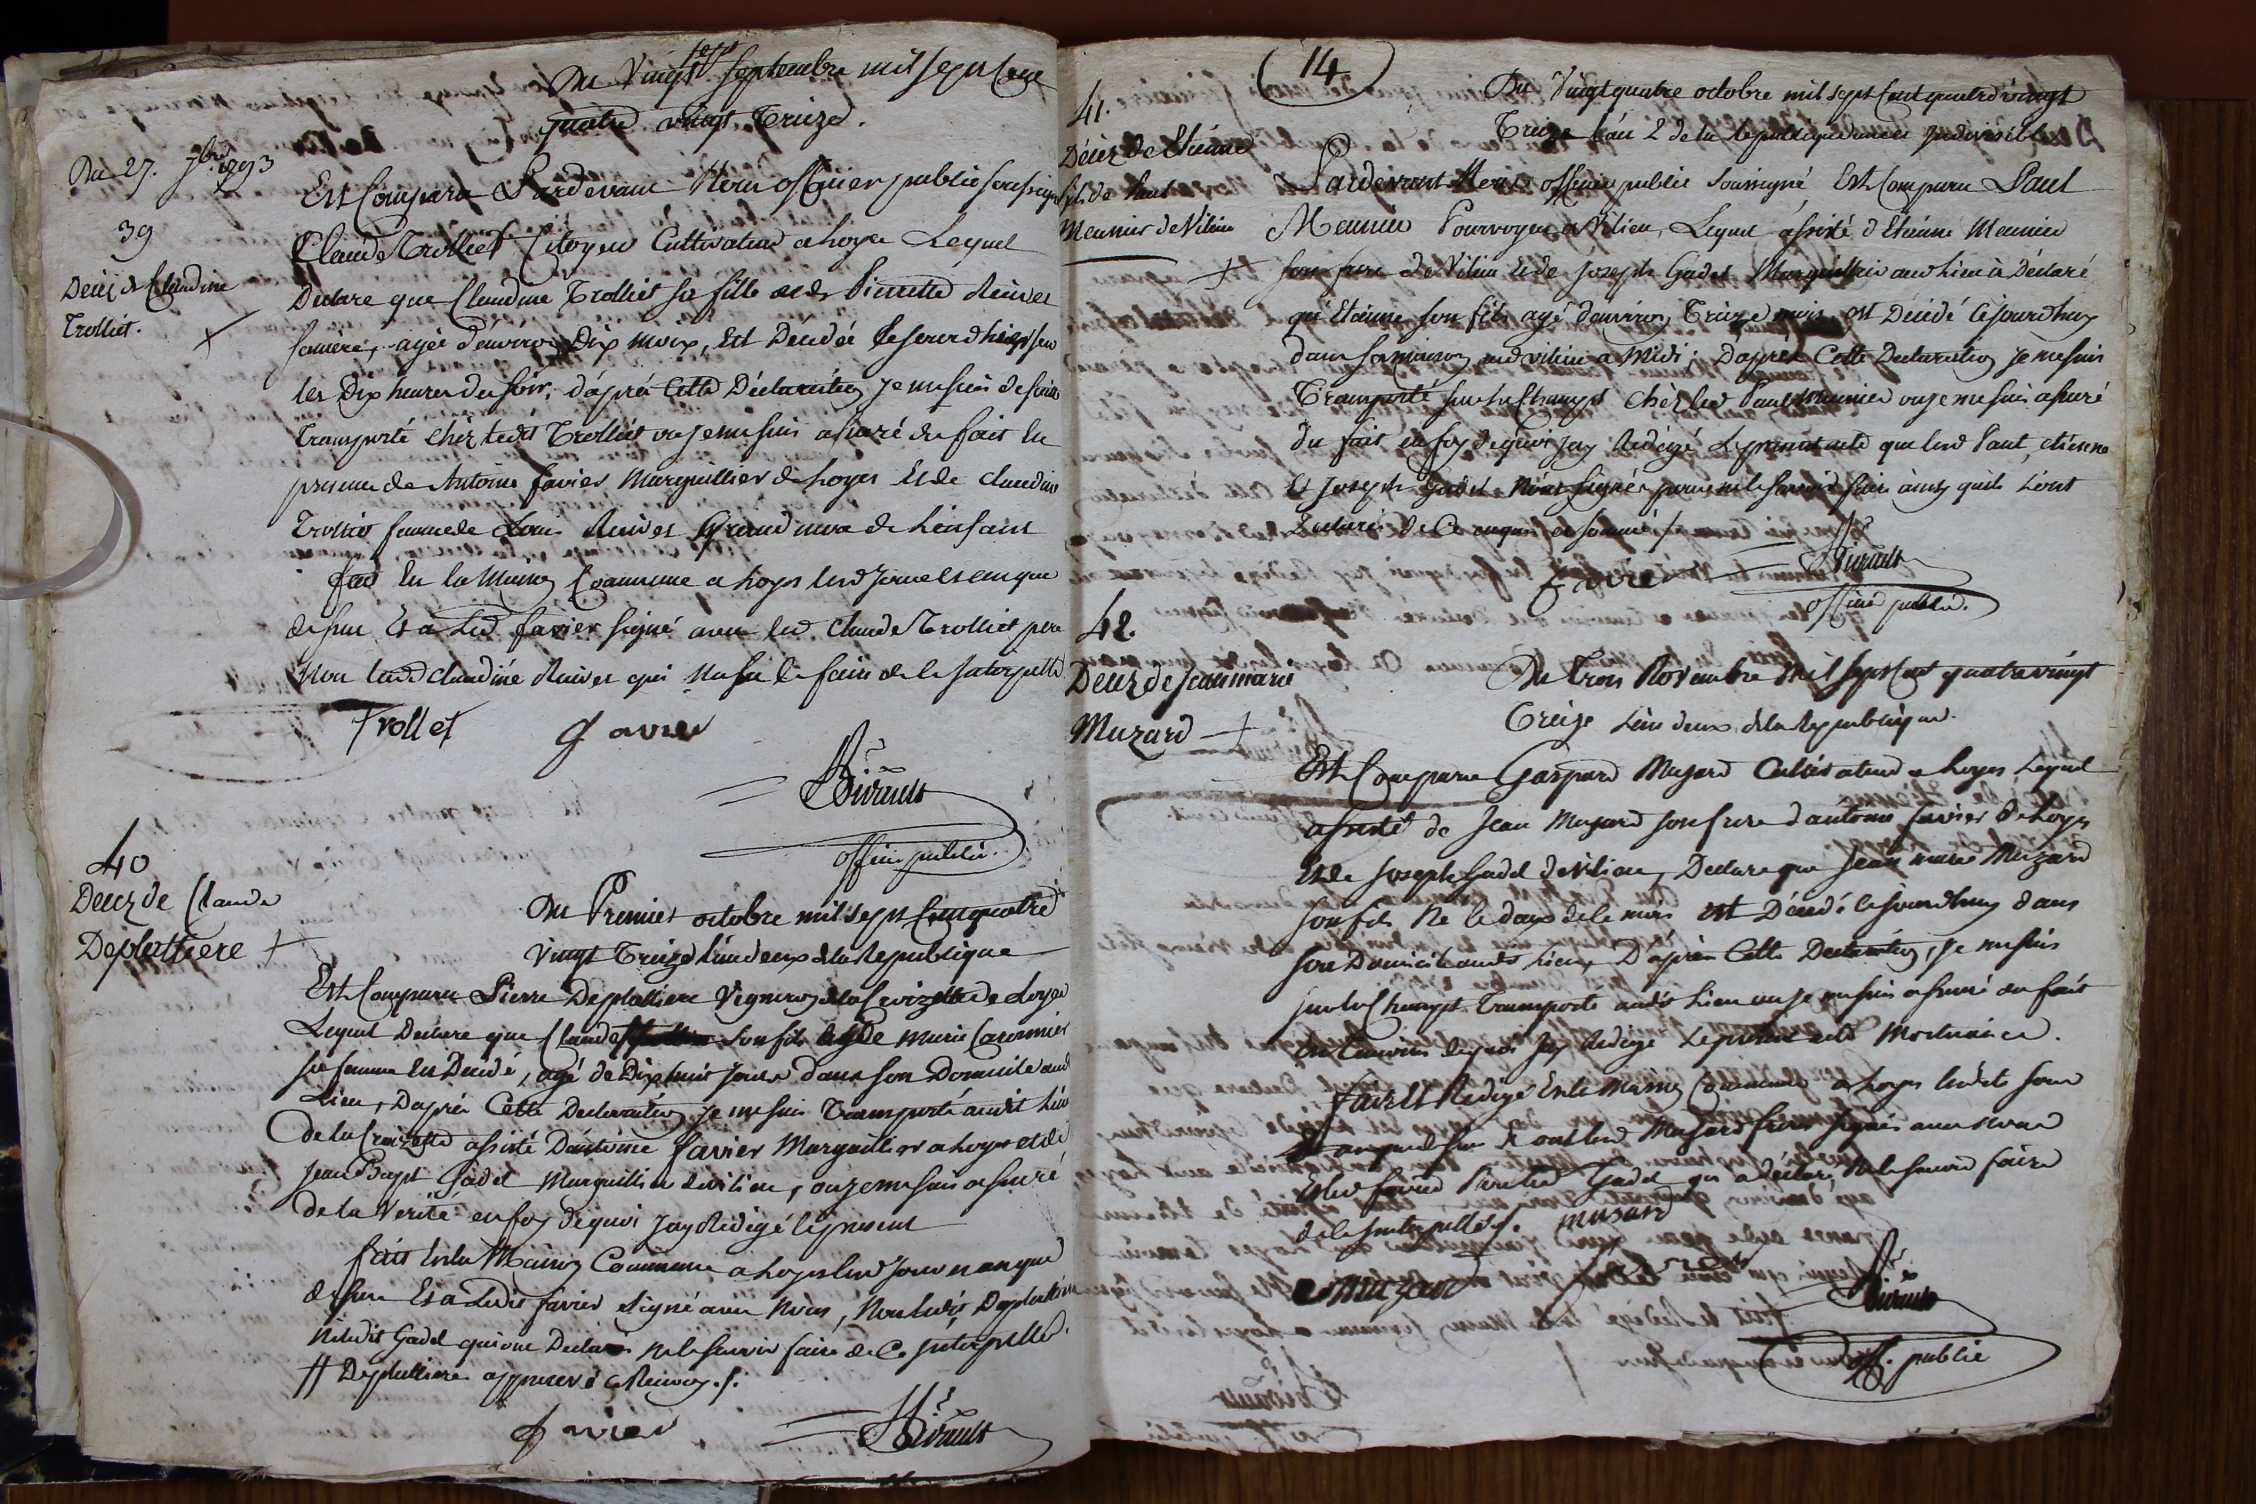 Du Vingt sept Septembre mil sept Cent
quatre vingt Treize.
Du 27. 7bre 1793
39
Décéz de Claudine
Trolliet.
Est Comparu Pardevant Nous officier public soussigné
Claude Trolliet Citoyen Cultivateur a Loyes Lequel
Declare que Claudine Trolliet sa fille et de Pierrette Ruivet
sa mere, agée d'environ Dix mois, Est Décédée
les Dix heures du soir, d'aprés Cette Déclaration je me suis de suite
Transporté chéz ledit Trolliet ou je me suis assuré du fait En
presence de Antoine favier Marguillier de Loyes Et de Claudine
femme de Louis Ruivet Grand mere de L'enfant
fait En la Maison Commune a Loyes led Jour et an que
dessus Et a Led favier signé avec led Claude Trolliet pere
Non lad Claudine Ruivet qui Na su le faire de le Interpellée
Trollet favier
Sirault
officier public.
40
Décéz de Claude
Deplattiere
Du Premier octobre mil sept Cent quatre
Vingt Treize l'an deux de la Republique
Est Comparu Pierre Deplattiere Vigneron de la Croizette de Loyes
Lequel Declare que Claude son fils et de Marie
sa femme Est Décédé, agé de Dix huit Jours dans son Domicile aud
Lieu, D'aprés Cette Declaration je me suis Transporté audit Lieu
de la Croizette assisté D'antoine favier Marguillier a Loyes et de
Jean Bapt Gadel Marguillier de vilieu, ou je me suis assuré
de la Verité en foy de quoi Jay Redigé le present
fait En la Maison Commune a Loyes led Jour et an que
dessus Et a Ledit favier Signé avec Nous, Non ledit Deplattiere
Ni ledit Gadel qui ont Declaré ne le savoir faire de Ce Interpellés.
# Deplattiere approuvé le Renvoy. /.
favier Sirault
14
41.
Décéz de Etienne
fils de Paul
Meunier de Vilieu
Du Vingt quatre octobre mil sept Cent quatre vingt
Treize L'an 2 de la Republique une et Indivisible
Pardevant Nous officier public soussigné Est Comparu Paul
Meunier Pourvoyeur a Vilieu, Lequel assisté d'Etienne Meunier
son frere de Vilieu Et de Joseph Gadel Marguillier aud Lieu à Déclaré
qu'Etienne son fils agé d'environ Treize mois est Décédé Cejourdhuy
dans sa maison aud vilieu a Midi; D'aprés Cette Declaration je me suis
Transporté sur Le Champt Chéz led Paul Meunier ou je me suis assuré
du fait en foy de quoi Jay Redigé Le present acte que led Paul, Etienne
Et Joseph Gadel Nont signé pour ne le savoir faire ainsy quils L'ont
Declaré de Ce enquis et sommé /
favier Sirault
officier public.
42.
Décéz de Jean marie
Muzard
Du Trois Novembre Mil Sept Cent quatre vingt
Treize L'an deux de la Republique.
Est Comparu Gaspard Muzard Cultivateur a Loyes Lequel
assisté de Jean Muzard son frere d'antoine favier de Loyes
Et de Joseph Gadel de vilieu, Declare que Jean marie Muzard
son fils Né le mois est Décédé Cejourdhuy dans
son Domicile audit Lieu, D'aprés Cette Declaration, je me suis
sur le Champt Transporté audit Lieu ou je me suis assuré du fait
En Temoin de quoi Jay Redigé Le present acte Mortuaire.
fait Et Redigé En la Maison Commune a Loyes ledit Jour
Et an que dessus Et ont Led Muzard freres signés avec Nous
Et led favier Non led Gadel qui a déclaré Ne le savoir faire
de le Interpellé /. muzard
muzard favier
Sirault
off. public